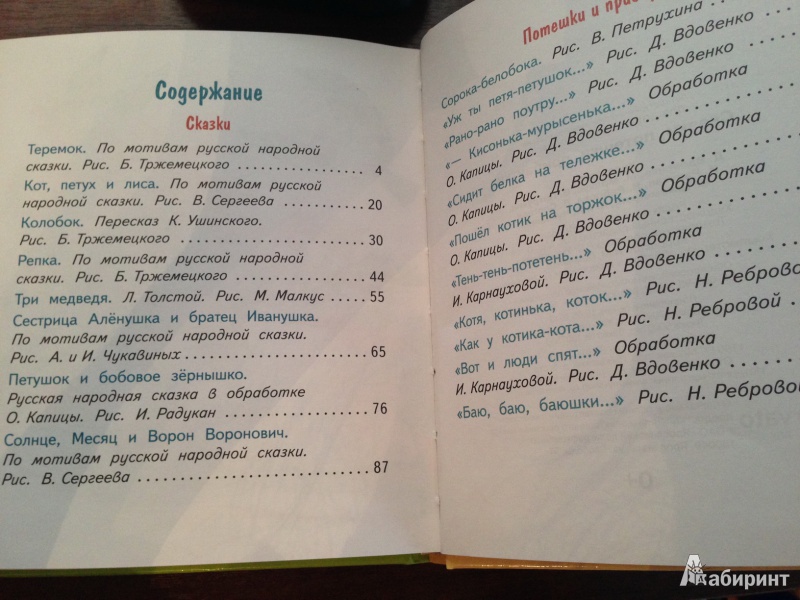 Содержание
Сказки
Теремок. По мотивам русской народной
сказки. Рис. Б. Тржемецкого 4
Кот, петух и лиса. По мотивам русской
народной сказки. Рис. В. Сергеева 20
Колобок. Пересказ К. Ушинского.
Рис. Б. Тржемецкого 30
Репка. По мотивам русской народной
сказки. Рис. Б. Тржемецкого 44
Три медведя. Л. Толстой. Рис. М. Малкус 55
Сестрица Алёнушка и братец Иванушка.
По мотивам русской народной сказки.
Рис. А. и И. Чукавиных 65
Петушок и бобовое зёрнышко.
Русская народная сказка в обработке
О. Капицы. Рис. И. Радукан 76
Солнце, Месяц и Ворон Воронович.
По мотивам русской народной сказки.
Рис. В. Сергеева 87
Потешки и
Сорока-белобока. Рис. В. Петрухина
«Уж ты петя-петушок...» Рис. Д. Вдовенко
«Рано-рано поутру...» Рис. Д. Вдовенко
«— Кисонька-мурысенька...» Обработка
О. Капицы. Рис. Д. Вдовенко
«Сидит белка на тележке...» Обработка
О. Капицы. Рис. Д. Вдовенко
«Пошёл котик на торжок...» Обработка
О. Капицы. Рис. Д. Вдовенко
«Тень-тень-потетень...» Обработка
И. Карнауховой. Рис. Д. Вдовенко
«Котя, котинька, коток...» Рис. Н. Ребровой
«Как у котика-кота...» Рис. Н. Ребровой
«Вот и люди спят...» Обработка
И. Карнауховой. Рис. Д. Вдовенко
«Баю, баю, баюшки...» Рис. Н. Ребровой
Лабиринт